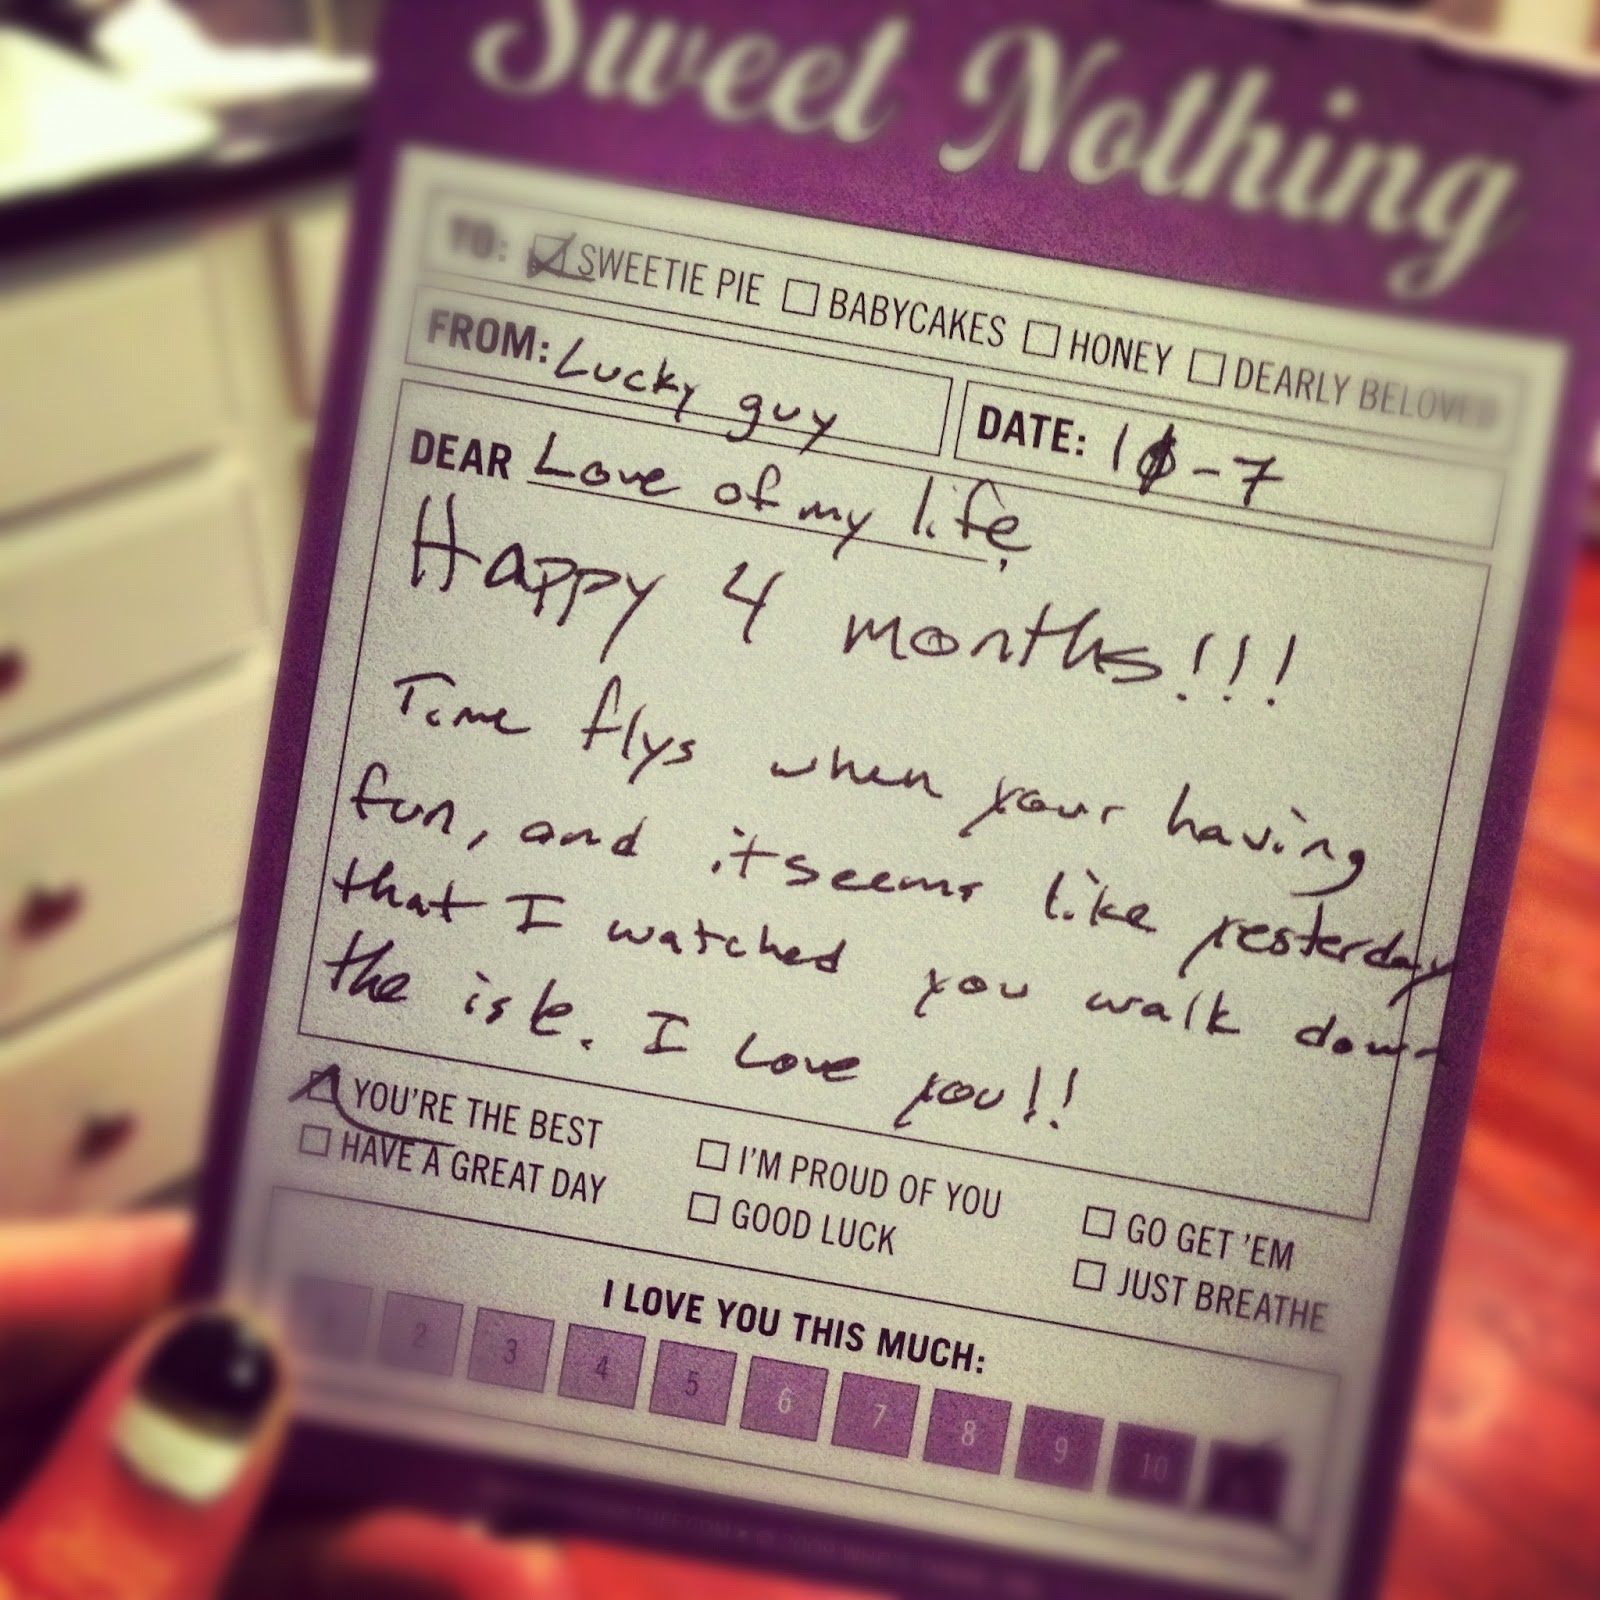 Sweet Nothing
TO: SWEETIE PIE BABYCAKES HONEY DEARLY BELOVED
FROM: Lucky guy DATE: 10-7
DEAR Love of my life,
Happy 4 months!!!
Time flys when your having
fun, and it seems like yesterday
that I watched you walk down
the isle. I Love you!!
YOU'RE THE BEST I'M PROUD OF YOU GO GET 'EM
HAVE A GREAT DAY GOOD LUCK JUST BREATHE
I LOVE YOU THIS MUCH:
2 3 4 5 6 7 8 9 10